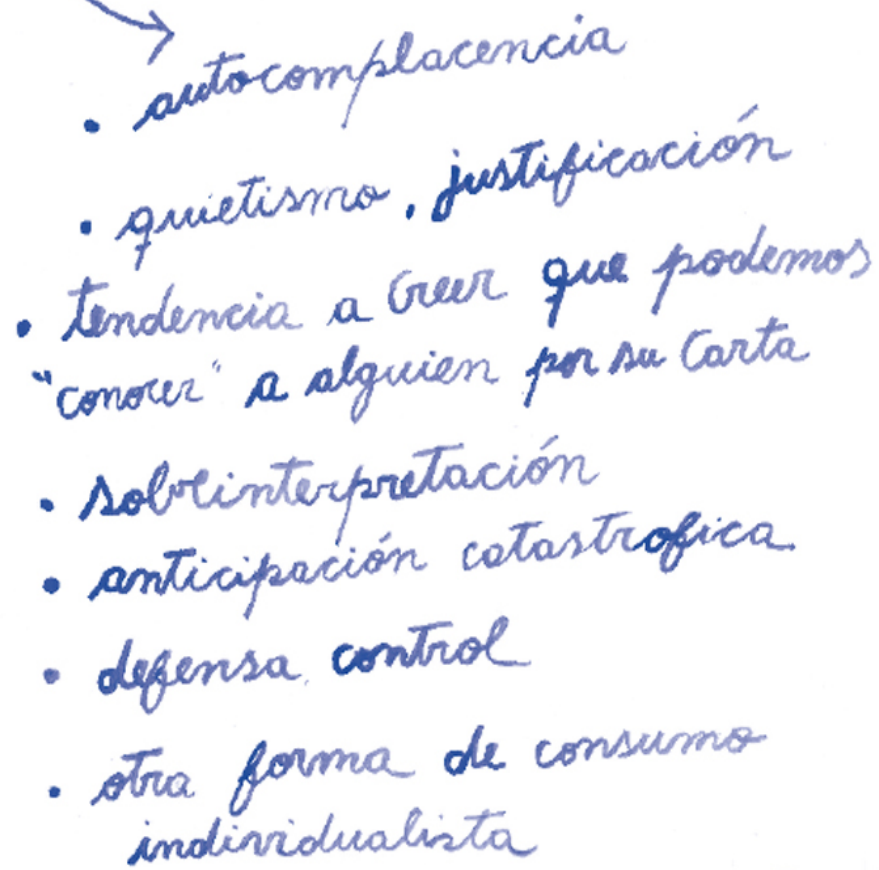 • autocomplacencia
• quietismo, justificación
• tendencia a creer que podemos
"conocer" a alguien por su Carta
• sobreinterpretación
• anticipación catastrofica
• defensa, control
• otra forma de consumo
individualista